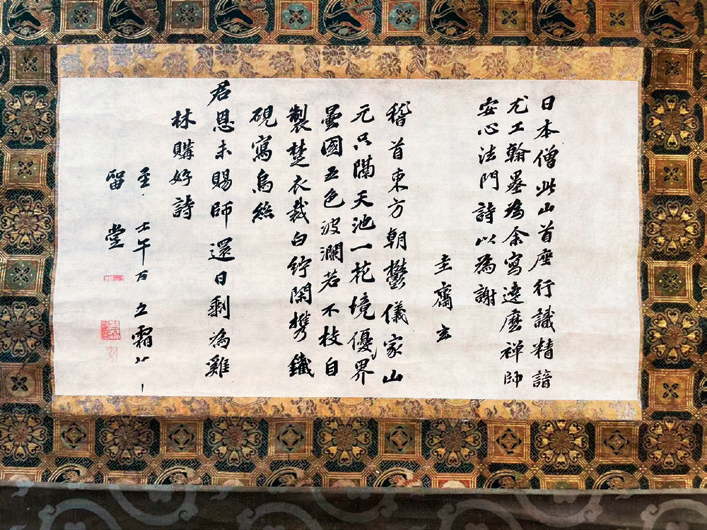 日本僧此山首座行識精諳
尤工翰墨為余寫達磨禅師
安心法門詩以為謝
圭齋玄
稽首東方朝鬱儀家山
元只隔天池一花境優界
曇國五色波瀾若不枝自
製楚衣裁白紵閑携鐵
硯寫烏絲
君恩未賜師還日剩為雞
林購好詩
至 壬午 立霜
留堂